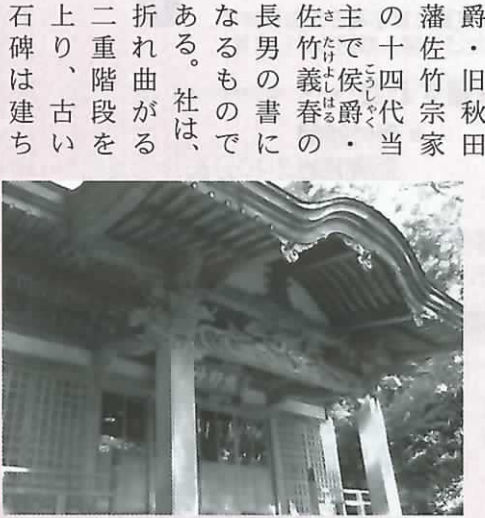 爵・旧秋田
藩佐竹宗家
の十四代当
主で侯爵・
佐竹義春の
長男の書に
なるもので
ある。社は、
折れ曲がる
二重階段を
上り、古い
石碑は建ち